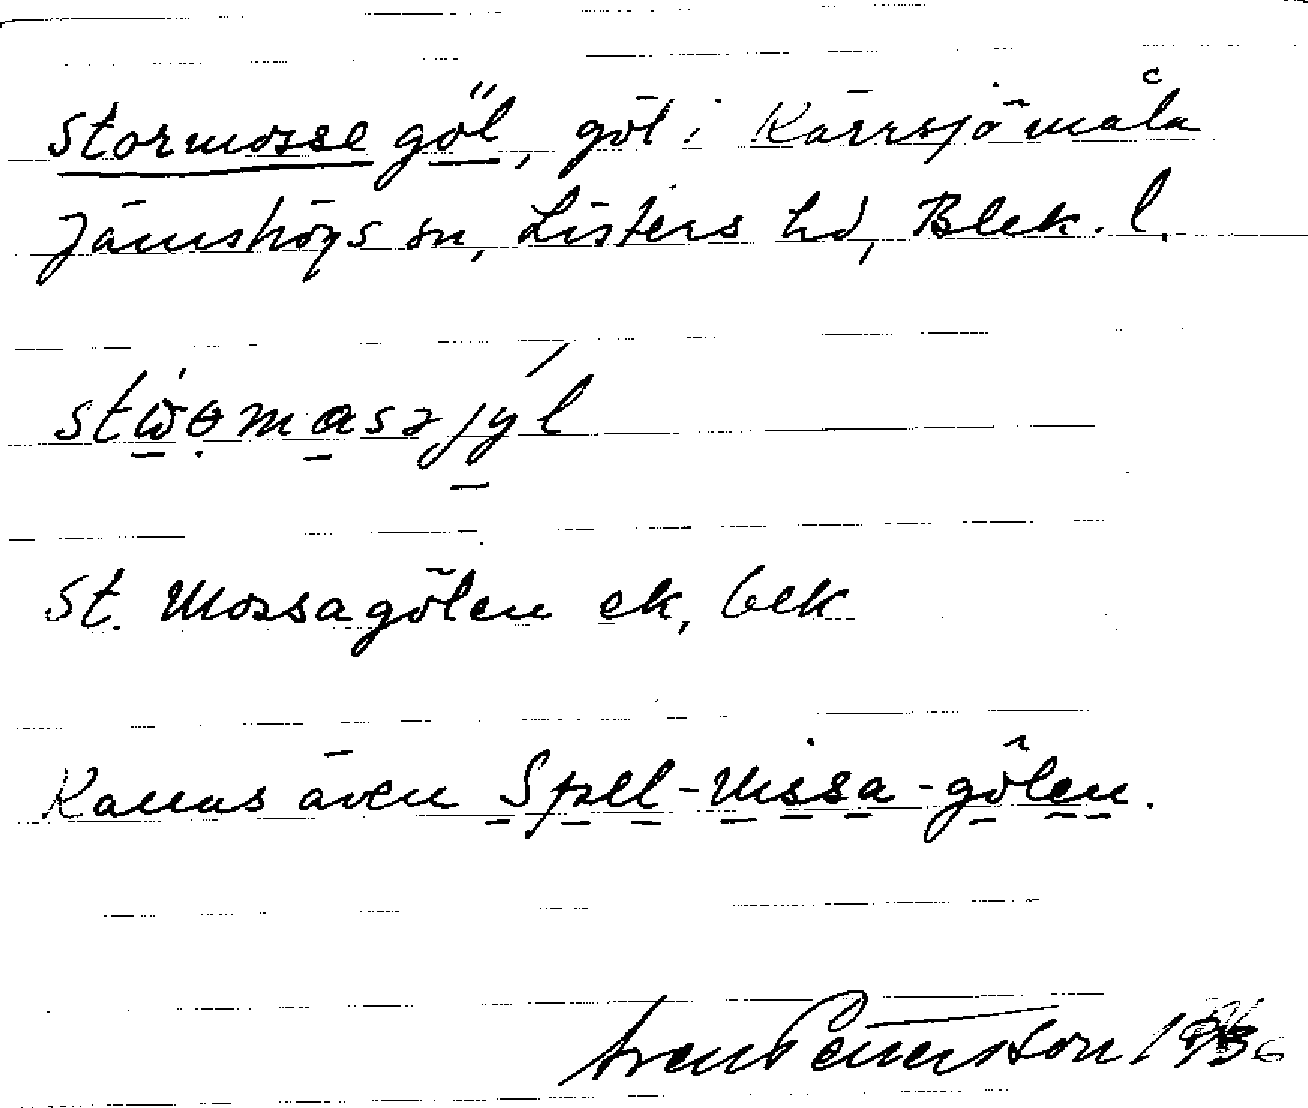 Stormosse göl, göl i Kärrsjömåla
Jämshögs sn, Listers hd, Blek. l.
St. Mossagölen ek, bek
Kallas även Spell-Missa-gölen.
Sven Pettersson